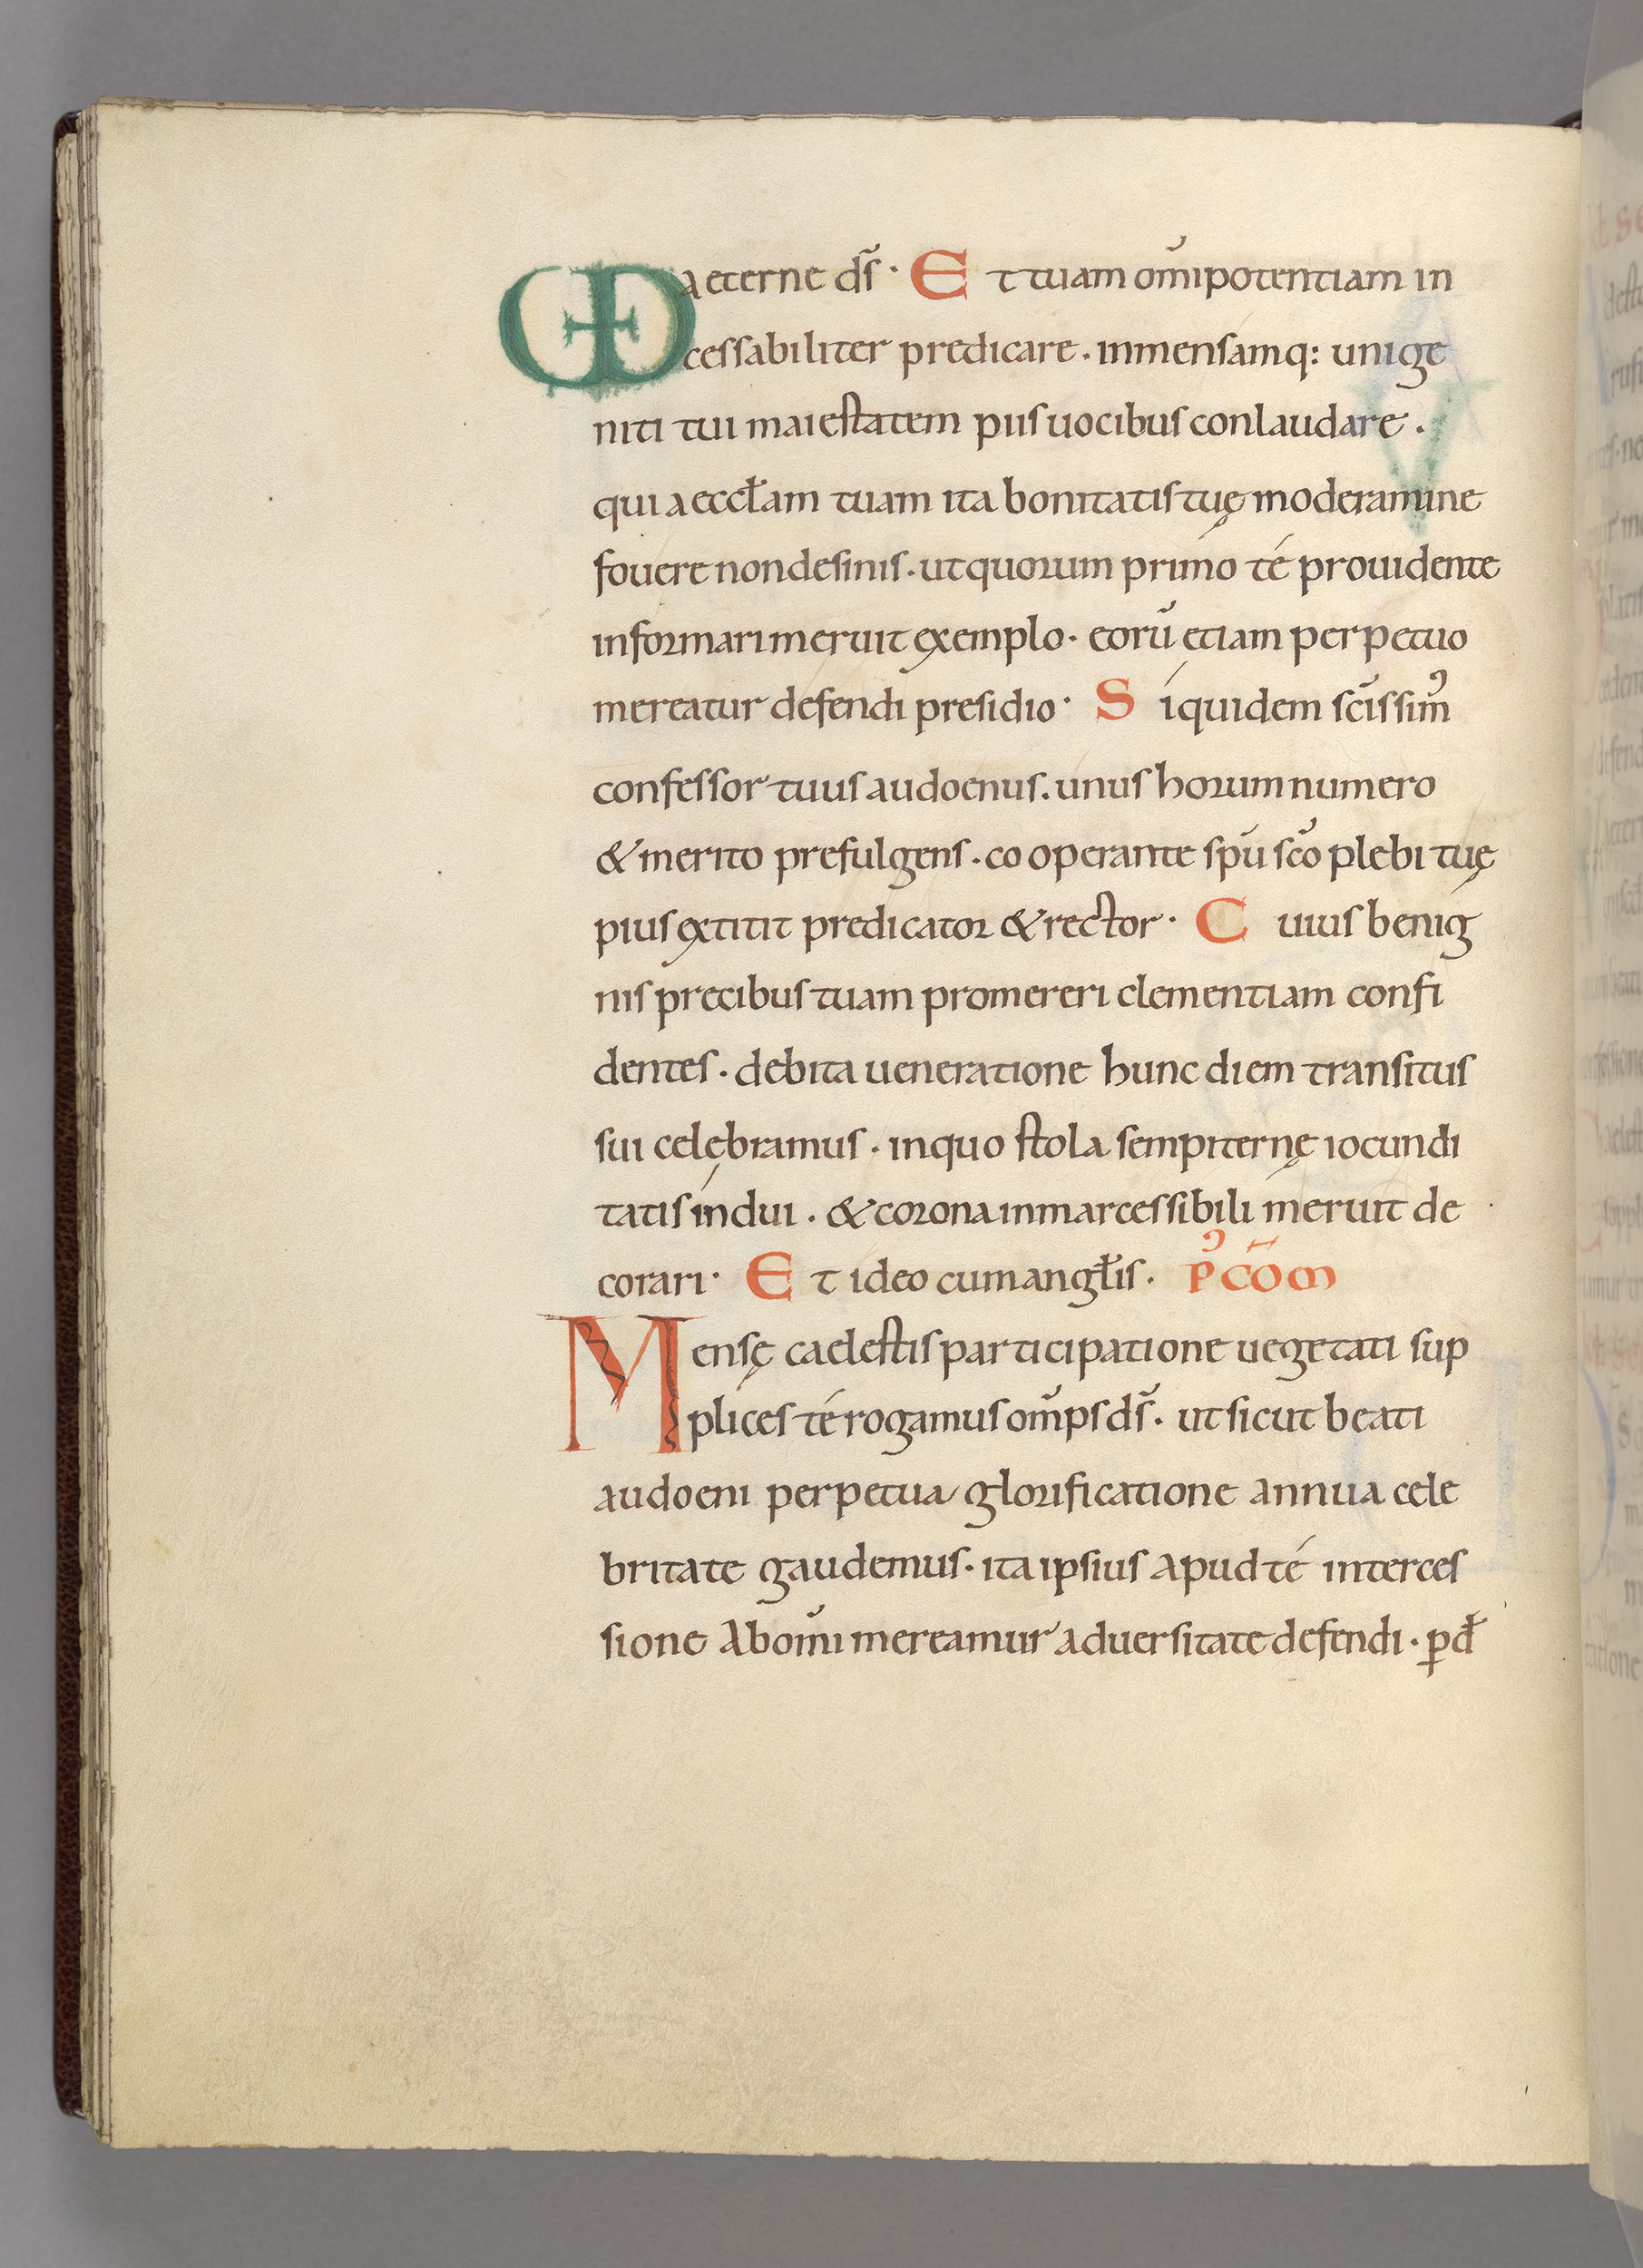 VD aeterne ds̃ · Et tuam om̃ipotentiam in
cessabiliter predicare . inmensamq: unige
niti tui maiestatem piis uocibus conlaudare .
qui aeccl̃am tuam ita bonitatis tuę moderamine
fouere non desinis . ut quorum primo té prouidente
informari meruit exemplo · eorũ etiam perpetuo
mereatur defendi presidio · Siquidem sc̃issim᾽
confessor tuus audoenus . unus horum numero
& merito prefulgens . co operante sp̃u sc̃o plebi tuę
pius extitit predicator & rector · Cuius benig
nis precibus tuam promereri clementiam confi
dentes . debita ueneratione hunc diem transitus
sui celębramus . in quo stola sempiternę iocundi
tatis indui . & corona inmarcessibili meruit de
corari · Et ideo cum angl̃is . P᾽ CÕM
Mensę caelestis participatione uegetati sup
plices té rogamus om̃ps ds̃ . ut sicut beati
audoeni perpetua glorificatione annua cele
britate gaudemus . ita ipsius apud té interces
sione ab om̃i mereamur aduersitate defendi . ꝑ d̃